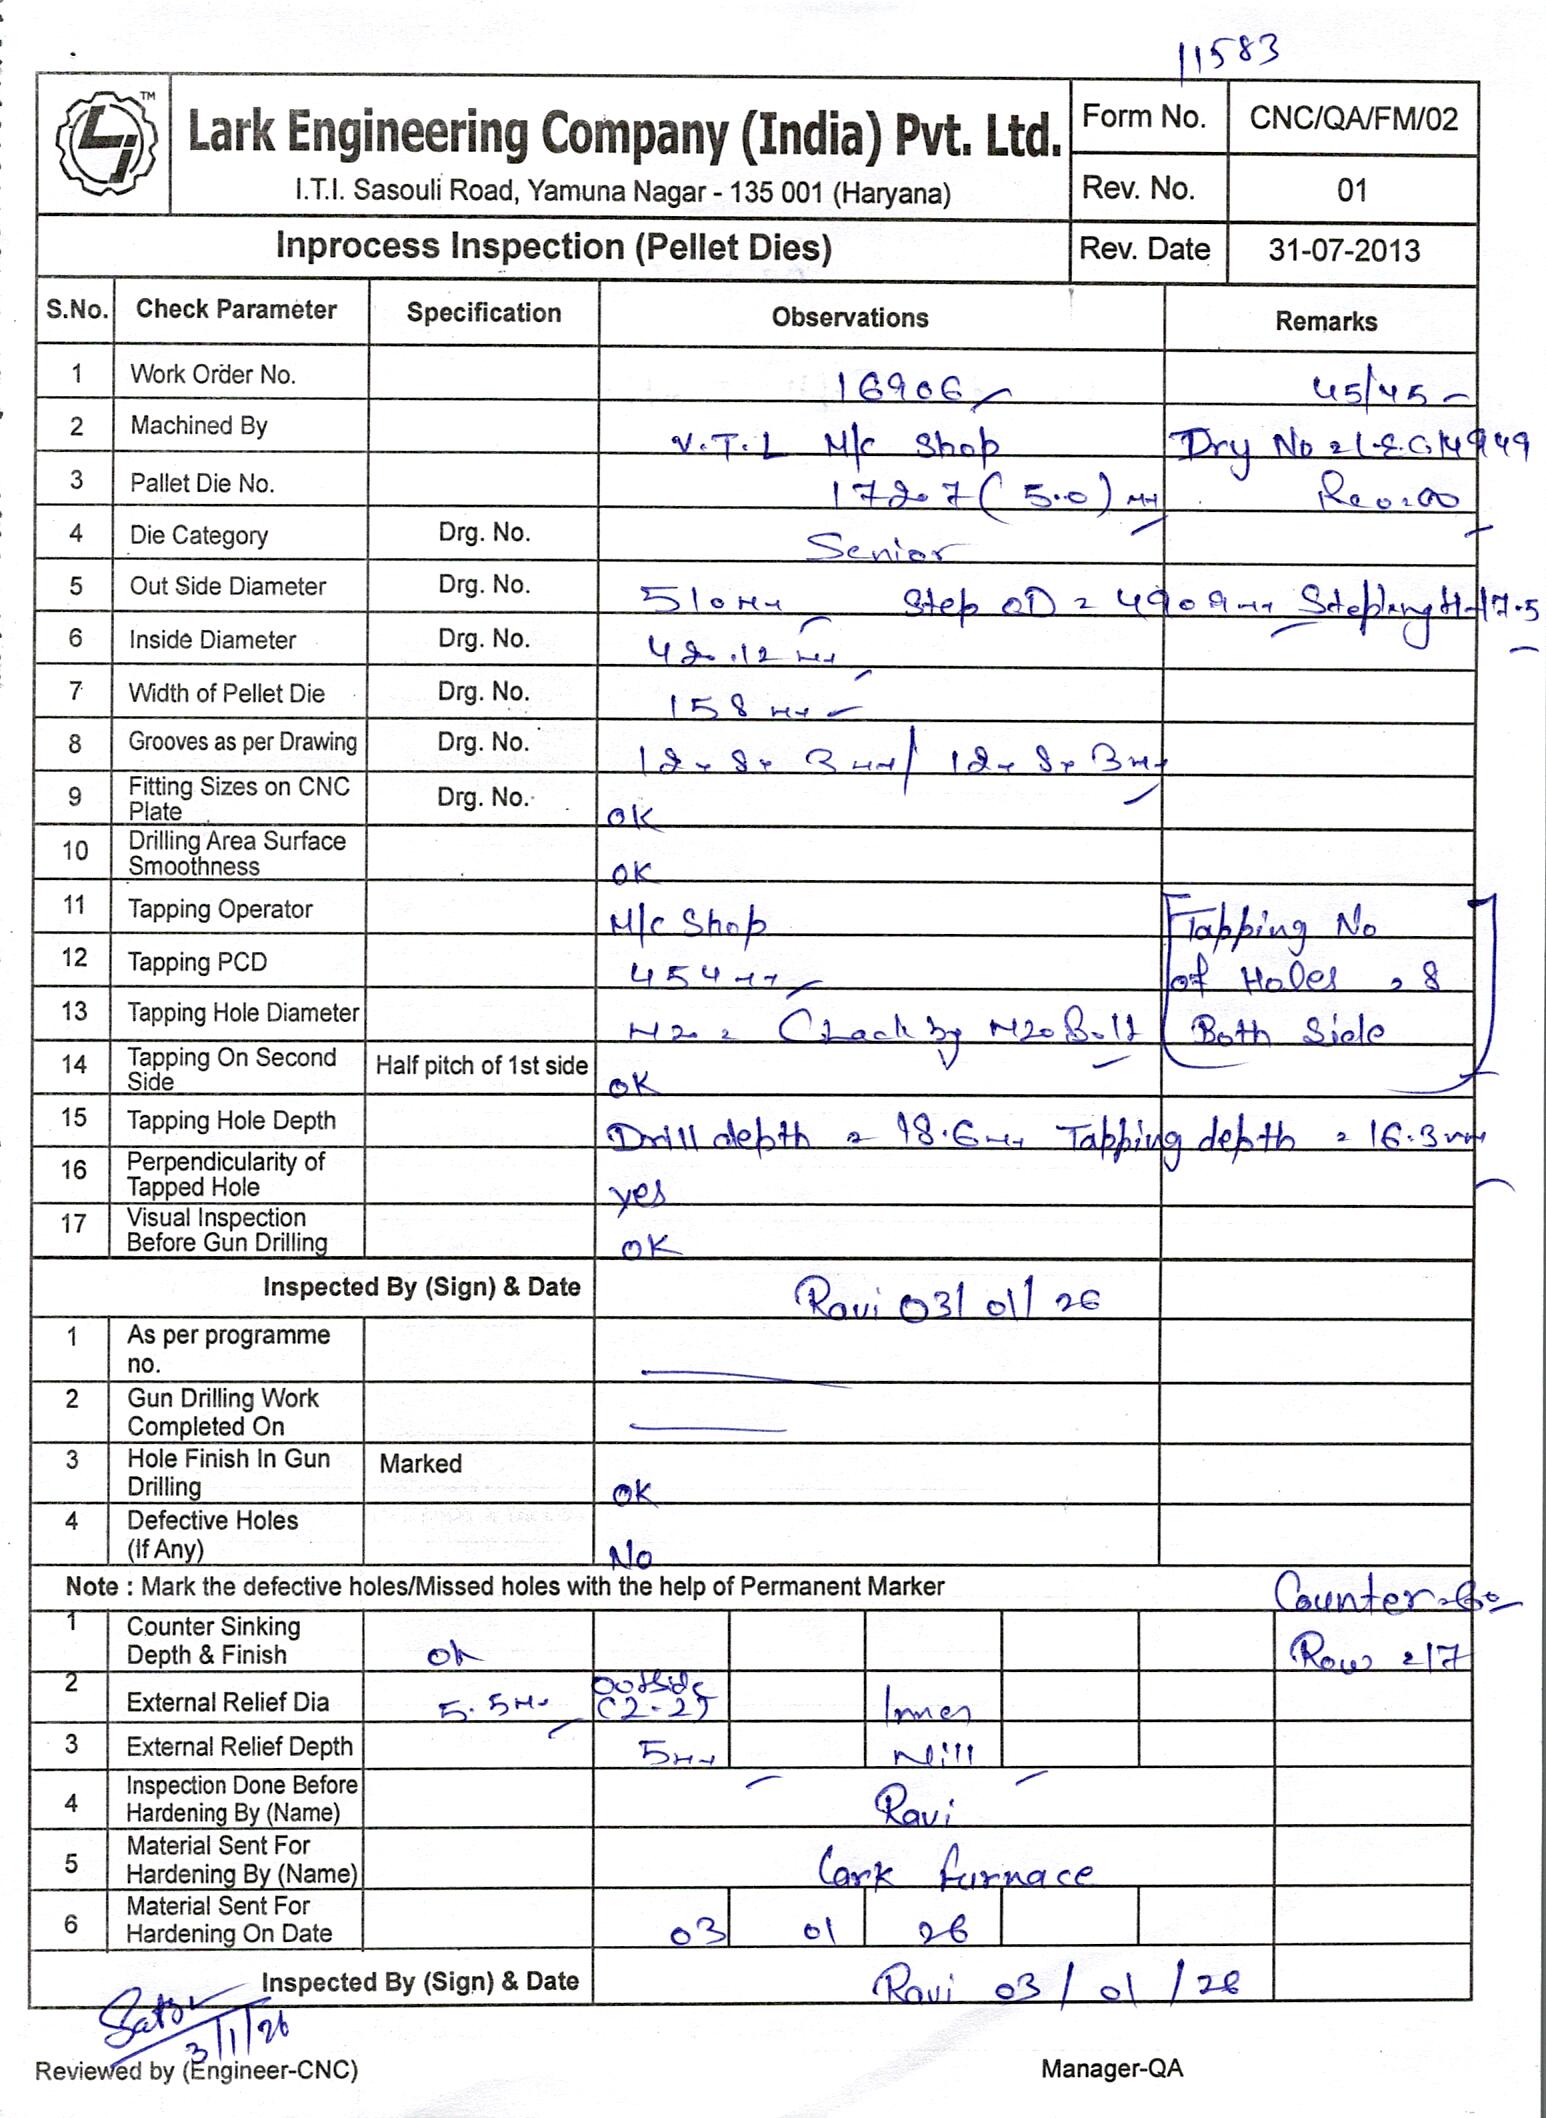 11583
TM
Lark Engineering Company (India) Pvt. Ltd.
I.T.I. Sasouli Road, Yamuna Nagar - 135 001 (Haryana)
Form No. CNC/QA/FM/02
Rev. No. 01
Inprocess Inspection (Pellet Dies) Rev. Date 31-07-2013
S.No. Check Parameter Specification Observations Remarks
1 Work Order No. 16906 45/45
2 Machined By V.T.L M/c Shop
3 Pallet Die No. (5.0)
4 Die Category Drg. No. Senior
5 Out Side Diameter Drg. No. 510 Step OD
6 Inside Diameter Drg. No.
7 Width of Pellet Die Drg. No. 158
8 Grooves as per Drawing Drg. No.
9 Fitting Sizes on CNC Plate Drg. No. OK
10 Drilling Area Surface Smoothness OK
11 Tapping Operator M/c Shop Tapping No
12 Tapping PCD 454 of Holes 8
13 Tapping Hole Diameter M20 by M20 Bolt Both Side
14 Tapping On Second Side Half pitch of 1st side OK
15 Tapping Hole Depth Drill depth = 18.6 Tapping depth = 16.3
16 Perpendicularity of Tapped Hole yes
17 Visual Inspection Before Gun Drilling OK
Inspected By (Sign) & Date Ravi 03/01/26
1 As per programme no.
2 Gun Drilling Work Completed On
3 Hole Finish In Gun Drilling Marked OK
4 Defective Holes (If Any) No
Note : Mark the defective holes/Missed holes with the help of Permanent Marker Counter
1 Counter Sinking Depth & Finish ok Row 17
2 External Relief Dia 5.5 Outside Inner
3 External Relief Depth 5 Nill
4 Inspection Done Before Hardening By (Name) Ravi
5 Material Sent For Hardening By (Name) Lark furnace
6 Material Sent For Hardening On Date 03 01 26
Inspected By (Sign) & Date Ravi 03/01/26
3/1/26
Reviewed by (Engineer-CNC) Manager-QA